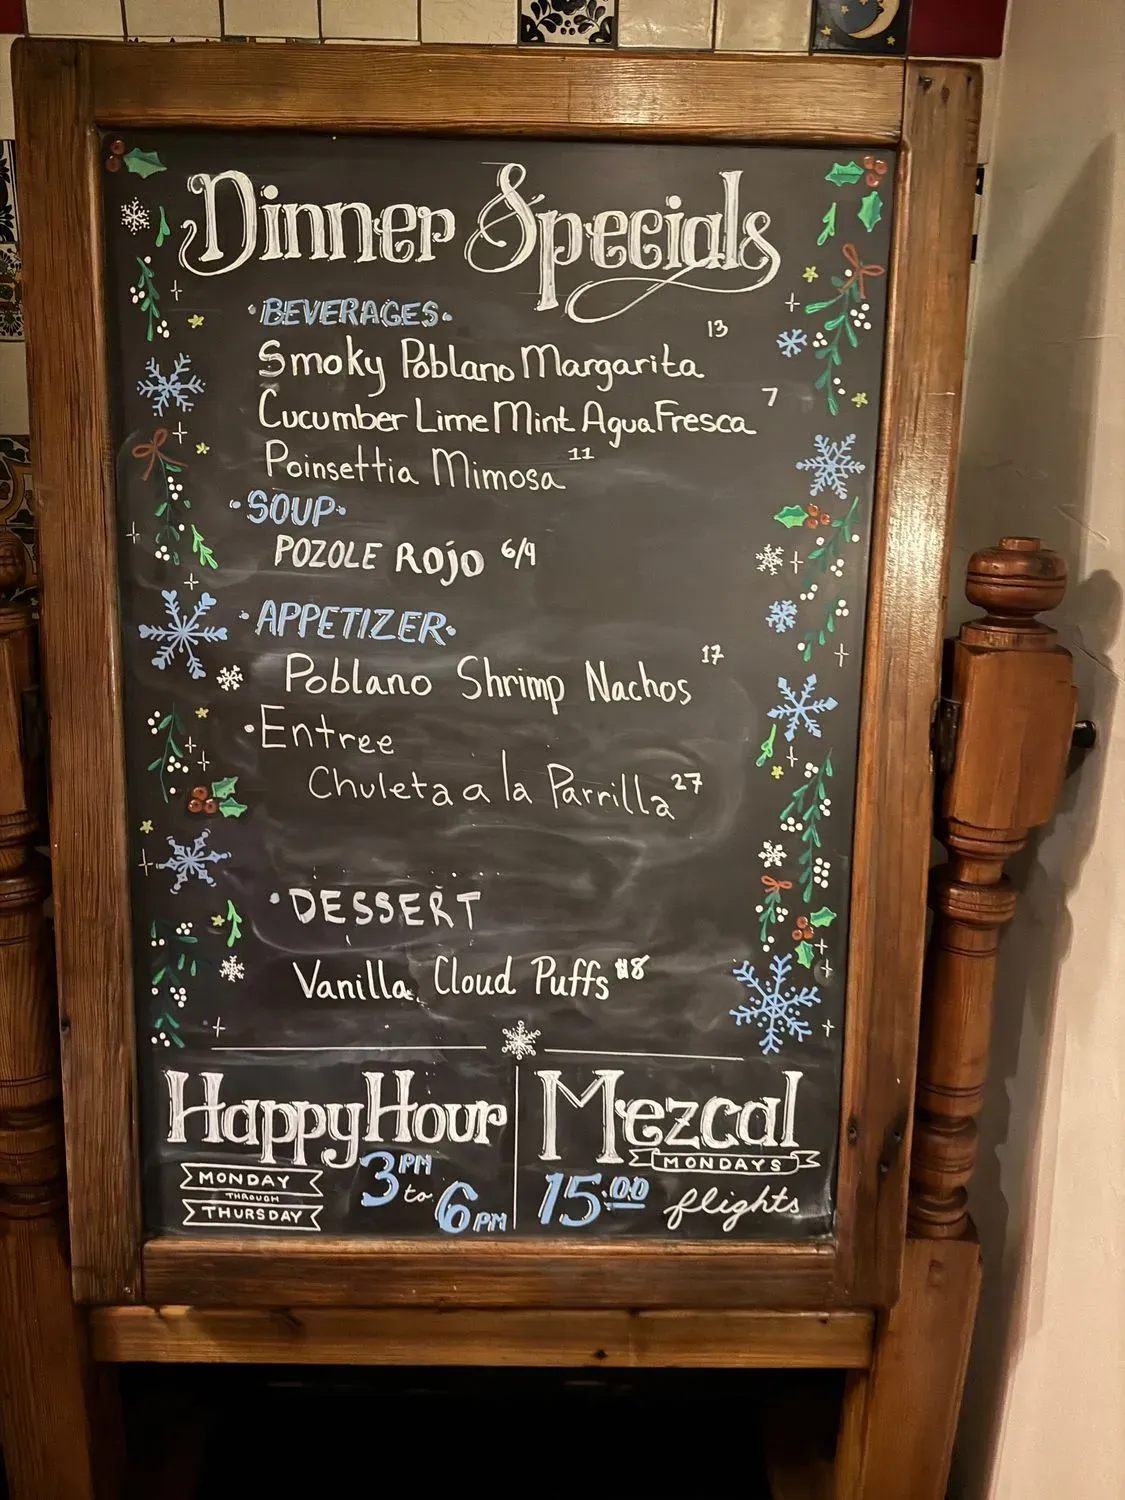 Dinner Specials
• BEVERAGES •
Smoky Poblano Margarita 13
Cucumber Lime Mint Agua Fresca 7
Poinsettia Mimosa 11
• SOUP •
POZOLE ROJO 6/9
• APPETIZER •
Poblano Shrimp Nachos 17
• Entree
Chuleta a la Parrilla 27
• DESSERT
Vanilla Cloud Puffs $8
Happy Hour
MONDAY
THROUGH
THURSDAY
3 PM
to
6 PM
Mezcal
MONDAYS
15.00 flights